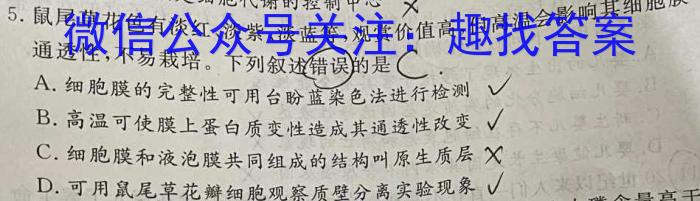 细胞代谢的控制中心
5. 鼠尾草花色有淡红、淡紫、淡蓝等,观赏价值高,但高温会影响其细胞膜
微信公众号关注:趣找答案
通透性,不易栽培。下列叙述错误的是 C
A. 细胞膜的完整性可用台盼蓝染色法进行检测 ✓
B. 高温可使膜上蛋白质变性造成其通透性改变 ✓
C. 细胞膜和液泡膜共同组成的结构叫原生质层 ×
D. 可用鼠尾草花瓣细胞观察质壁分离实验现象 ✓